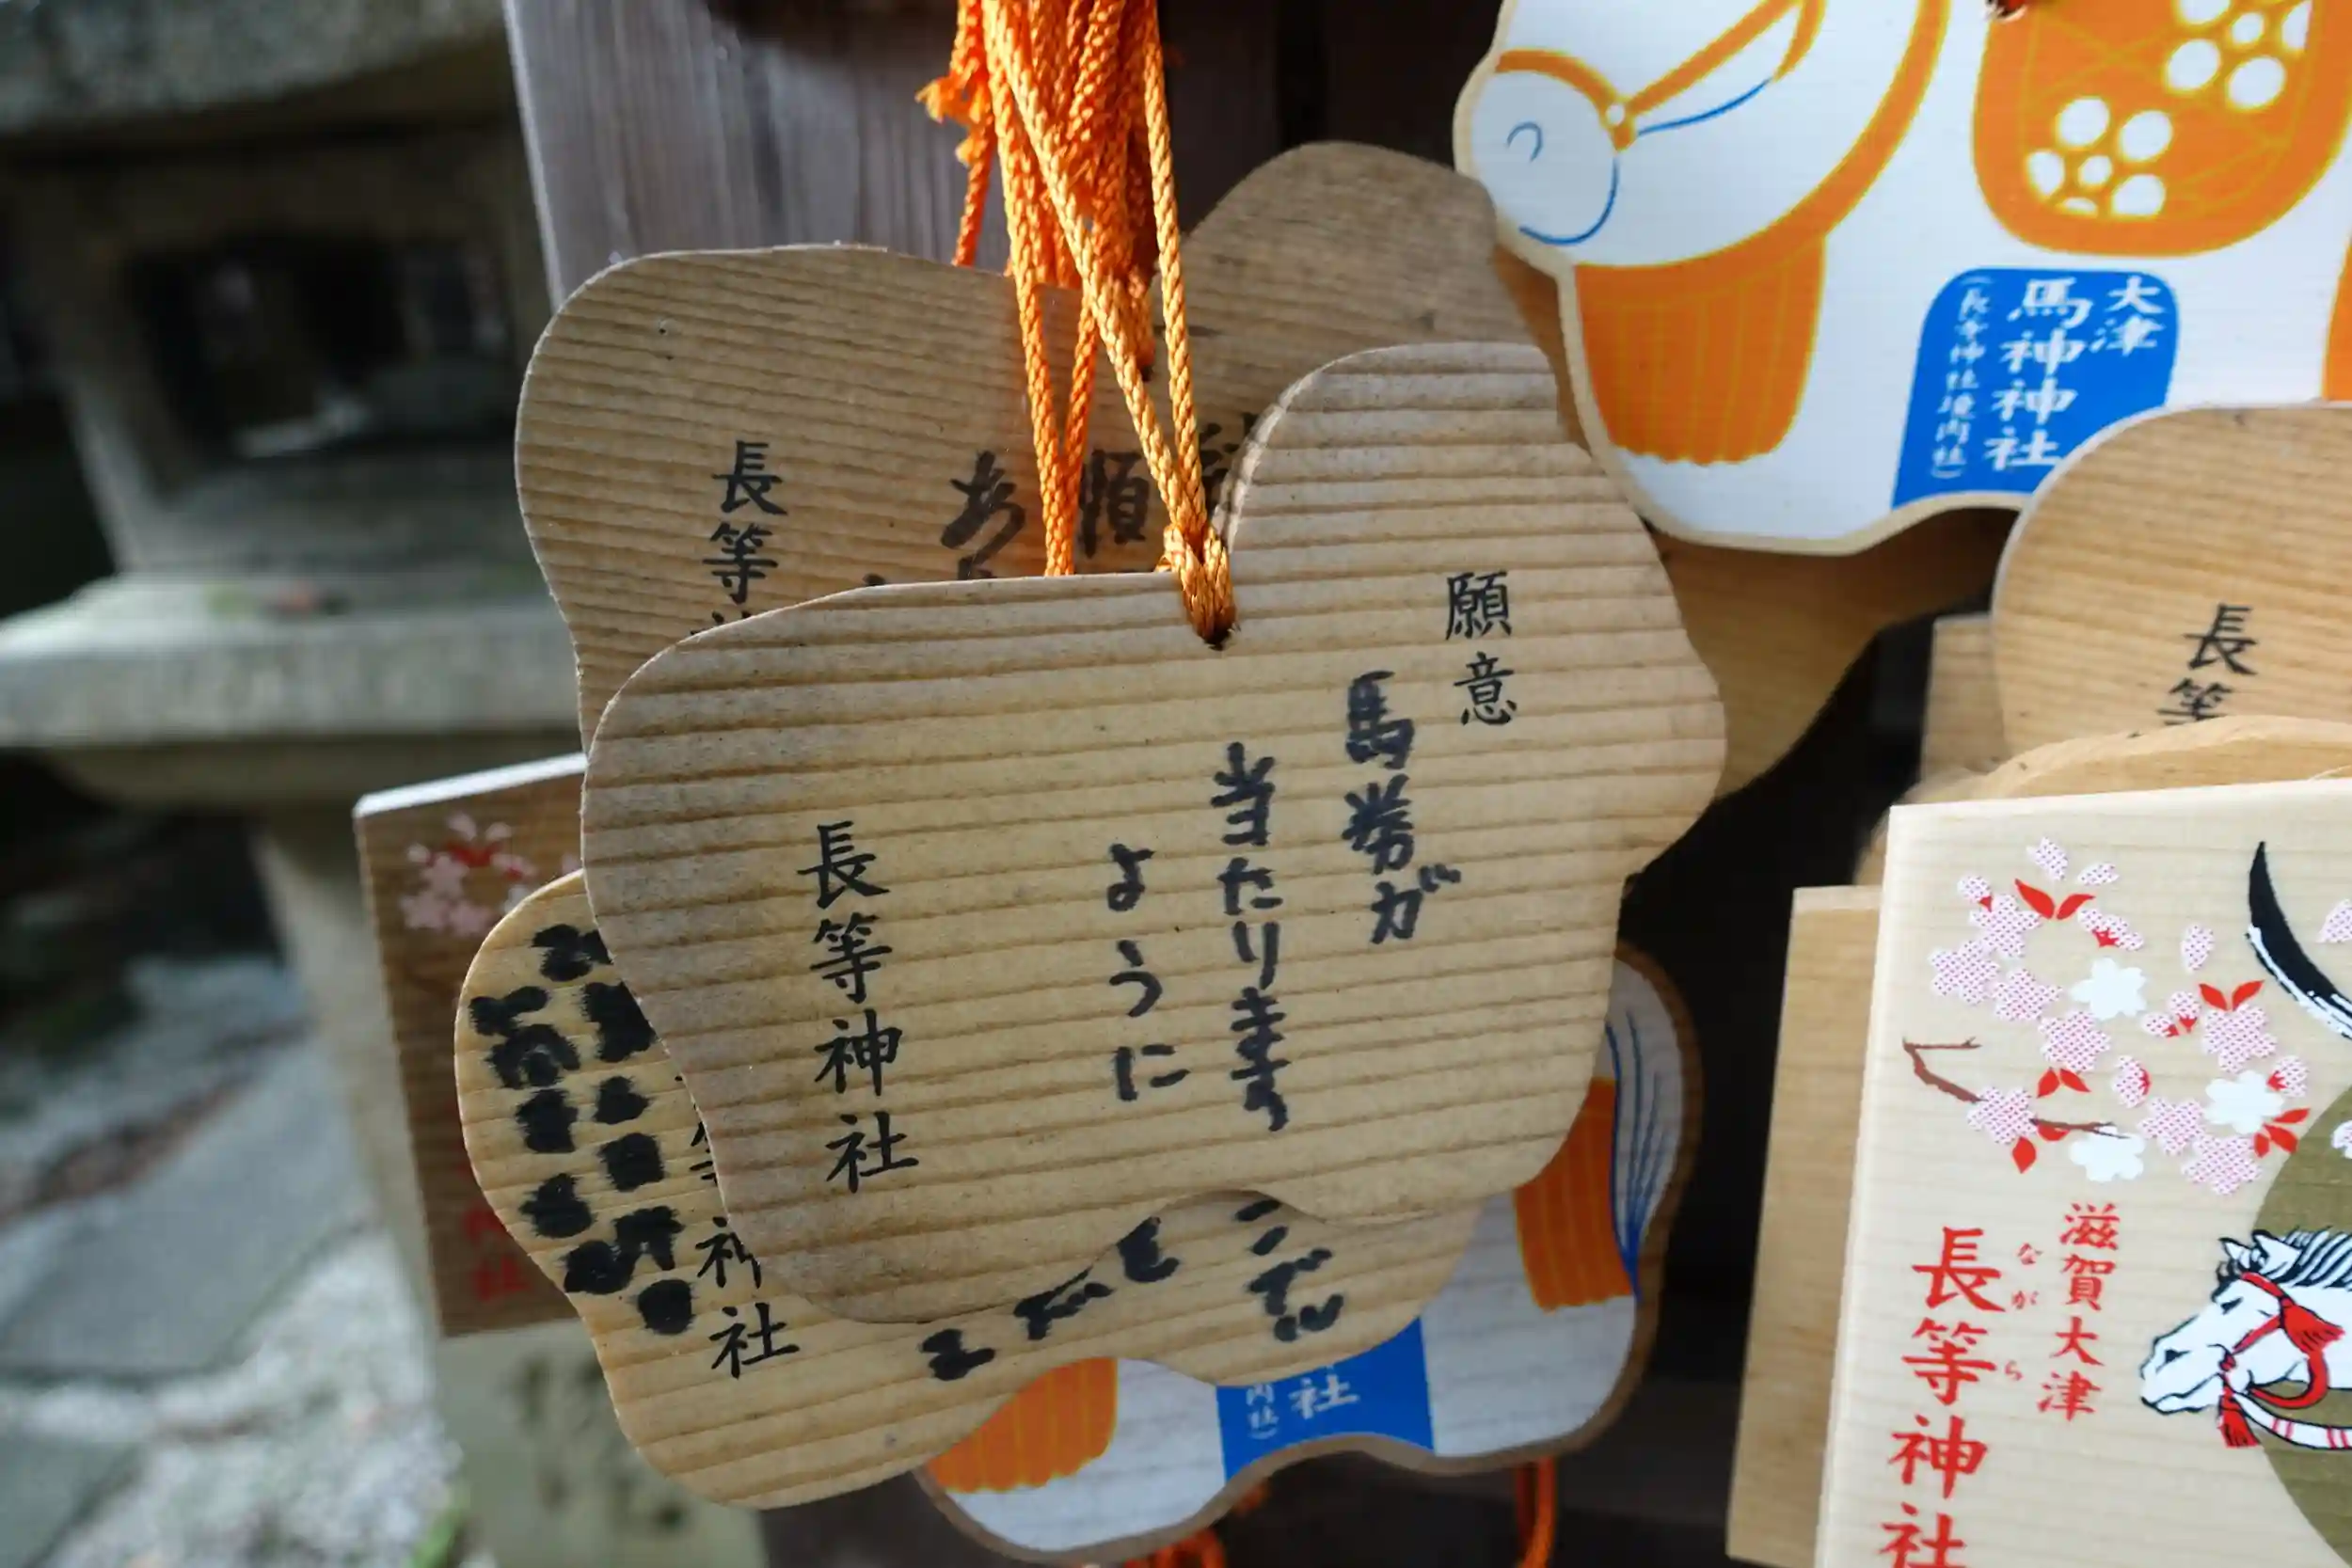 願意
馬券が
当たります
ように
長等神社
長等
あ
願
大津
馬神神社
(長等神社境内社)
長等
滋賀大津
長等神社
ながら
社
社
内社)